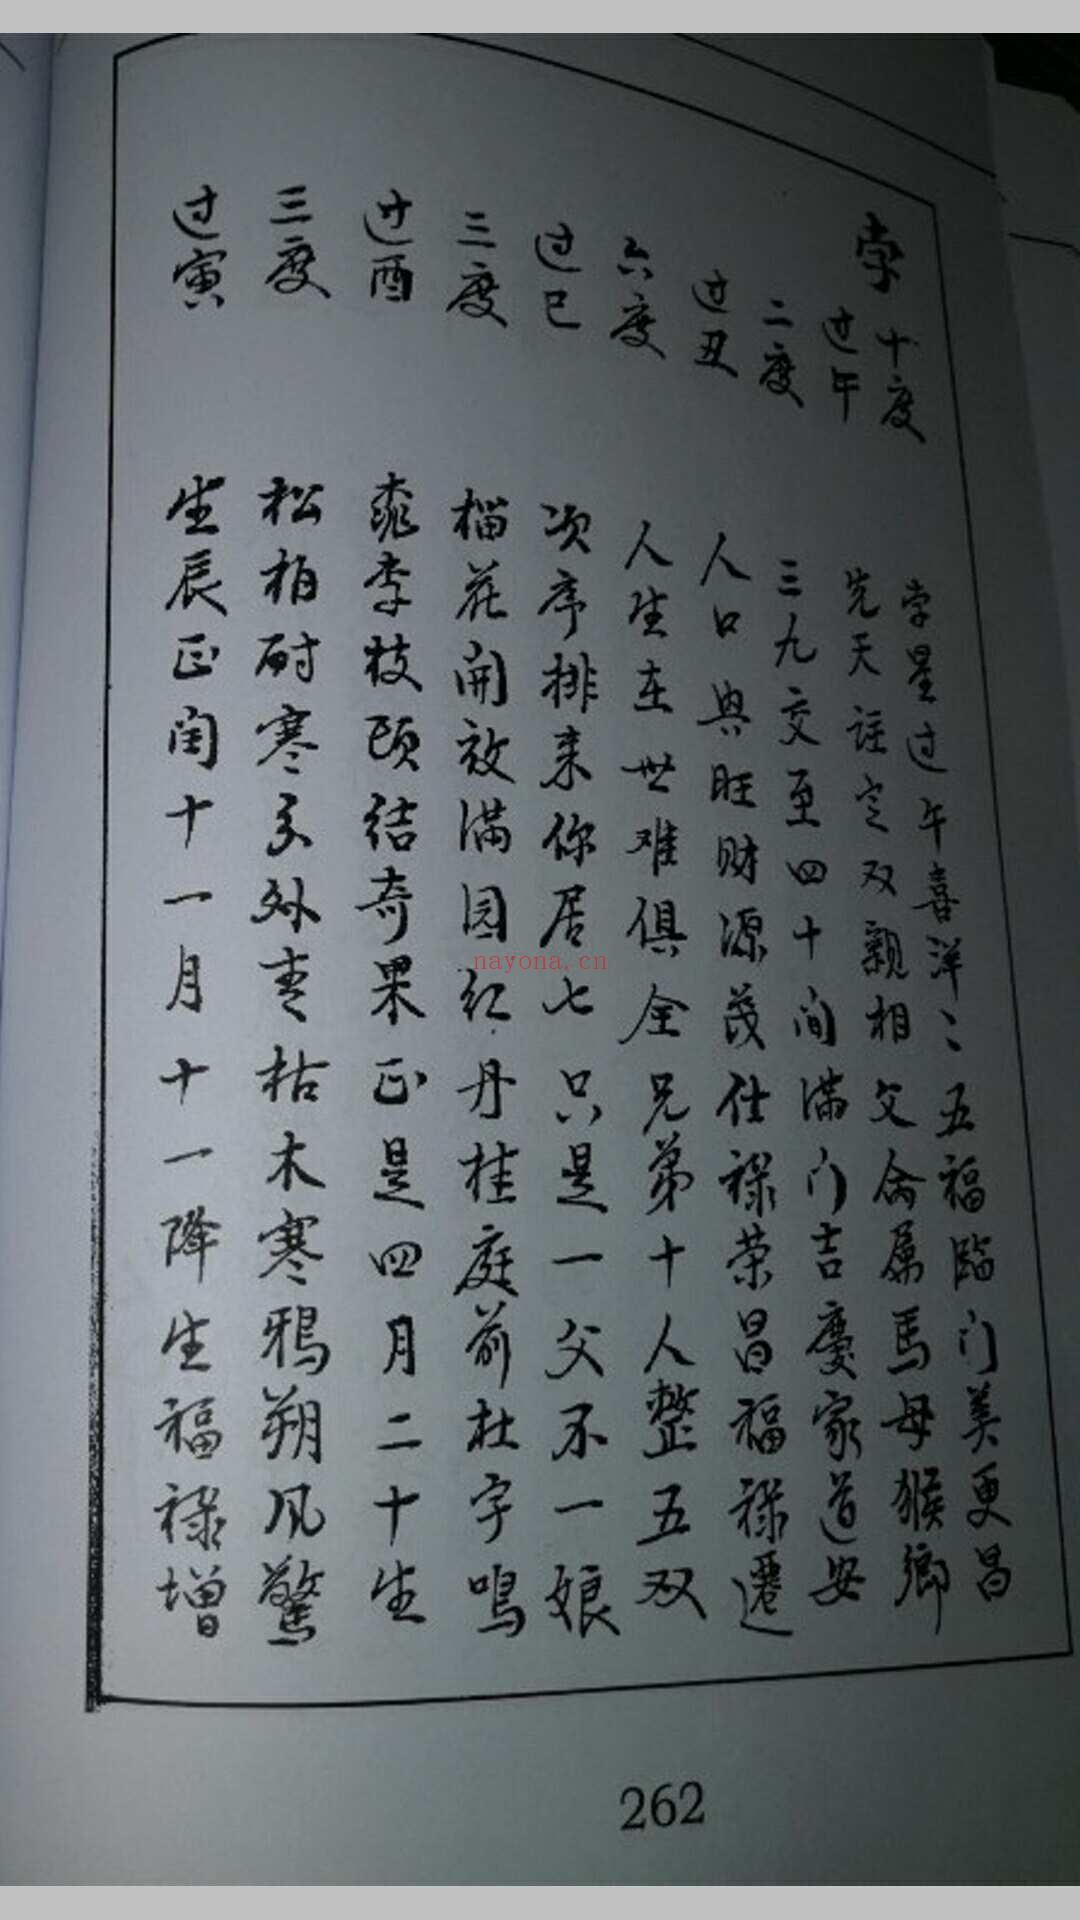 孛 十度 过午 二度 过丑 六度 过巳 三度 过酉 三度 过寅
孛星过午喜洋〻五福临门美更昌
先天注定双亲相父命属马母猴乡
三九交至四十间满门吉庆家道安
人口興旺财源茂仕禄荣昌福禄遷
人生在世难俱全兄弟十人整五双
次序排来你居七只是一父不一娘
榴花開放满园红丹桂庭前杜宇鳴
桃李枝頭结奇果正是四月二十生
松柏耐寒分外青枯木寒鴉朔风驚
生辰正闰十一月十一降生福禄增
nayona.cn
262